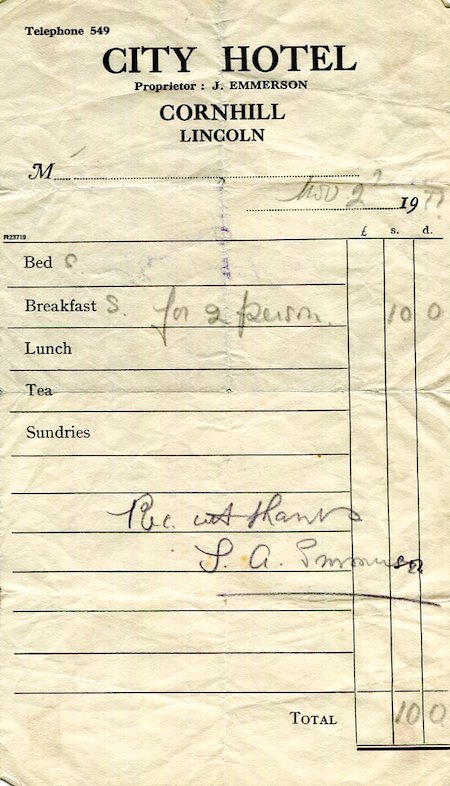 Telephone 549
CITY HOTEL
Proprietor : J. EMMERSON
CORNHILL
LINCOLN
M
Nov 2 19
£ s. d.
R23719
Bed S
Breakfast S. for 2 person. 10 0
Lunch
Tea
Sundries
Rec. wt thanks
Total 10 0